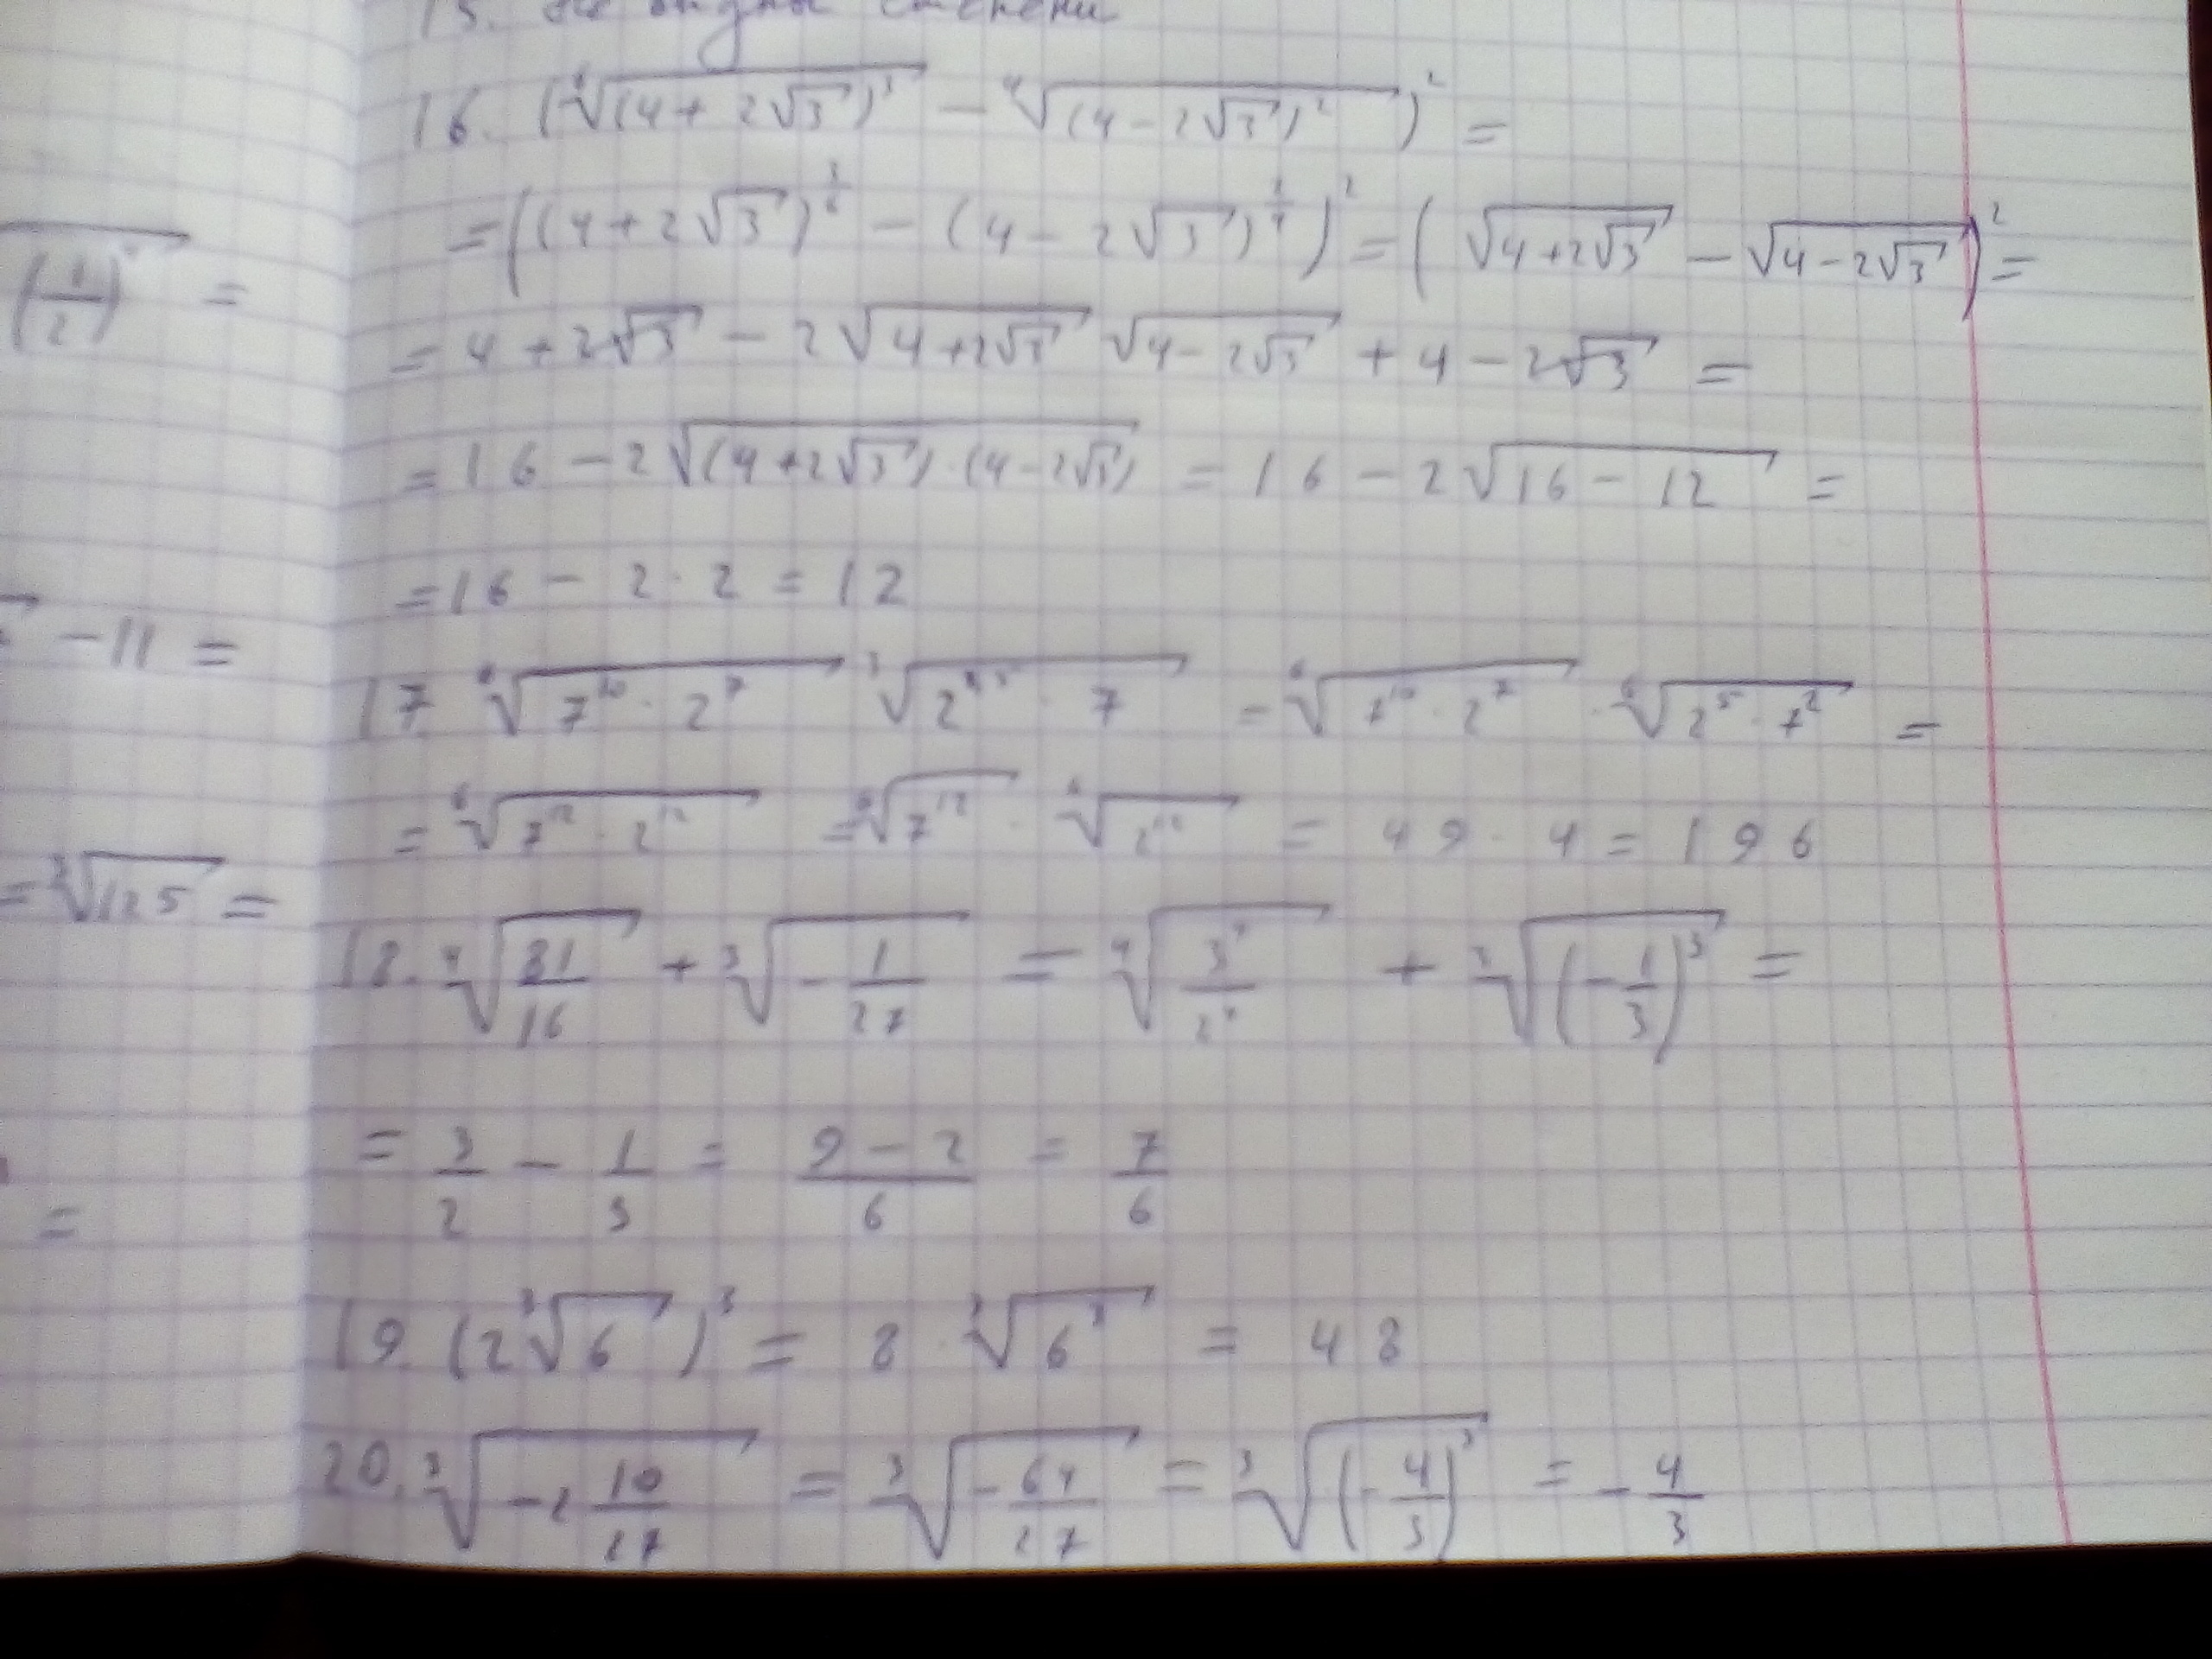 15. степени
16. (⁶√(4+2√3)³ − ⁴√(4−2√3)²)² =
= ((4+2√3)^(3/6) − (4−2√3)^(2/4))² = (√(4+2√3) − √(4−2√3))² =
= 4+2√3 − 2√(4+2√3) √(4−2√3) + 4 − 2√3 =
= 16 − 2√((4+2√3)·(4−2√3)) = 16 − 2√(16−12) =
= 16 − 2·2 = 12
17 ⁶√(7¹⁰·2⁷) ³√(2^2,5·7) = ⁶√(7¹⁰·2⁷) · ⁶√(2⁵·7²) =
= ⁶√(7¹²·2¹²) = ⁶√7¹² · ⁶√2¹² = 49·4 = 196
18. ⁴√(81/16) + ³√(−1/27) = ⁴√(3⁴/2⁴) + ³√((−1/3)³) =
= 3/2 − 1/3 = (9−2)/6 = 7/6
19. (2 ³√6)³ = 8·³√6³ = 48
20. ³√(−2 10/27) = ³√(−64/27) = ³√((−4/3)³) = −4/3
(1/2) =
−11 =
= ³√125 =
=